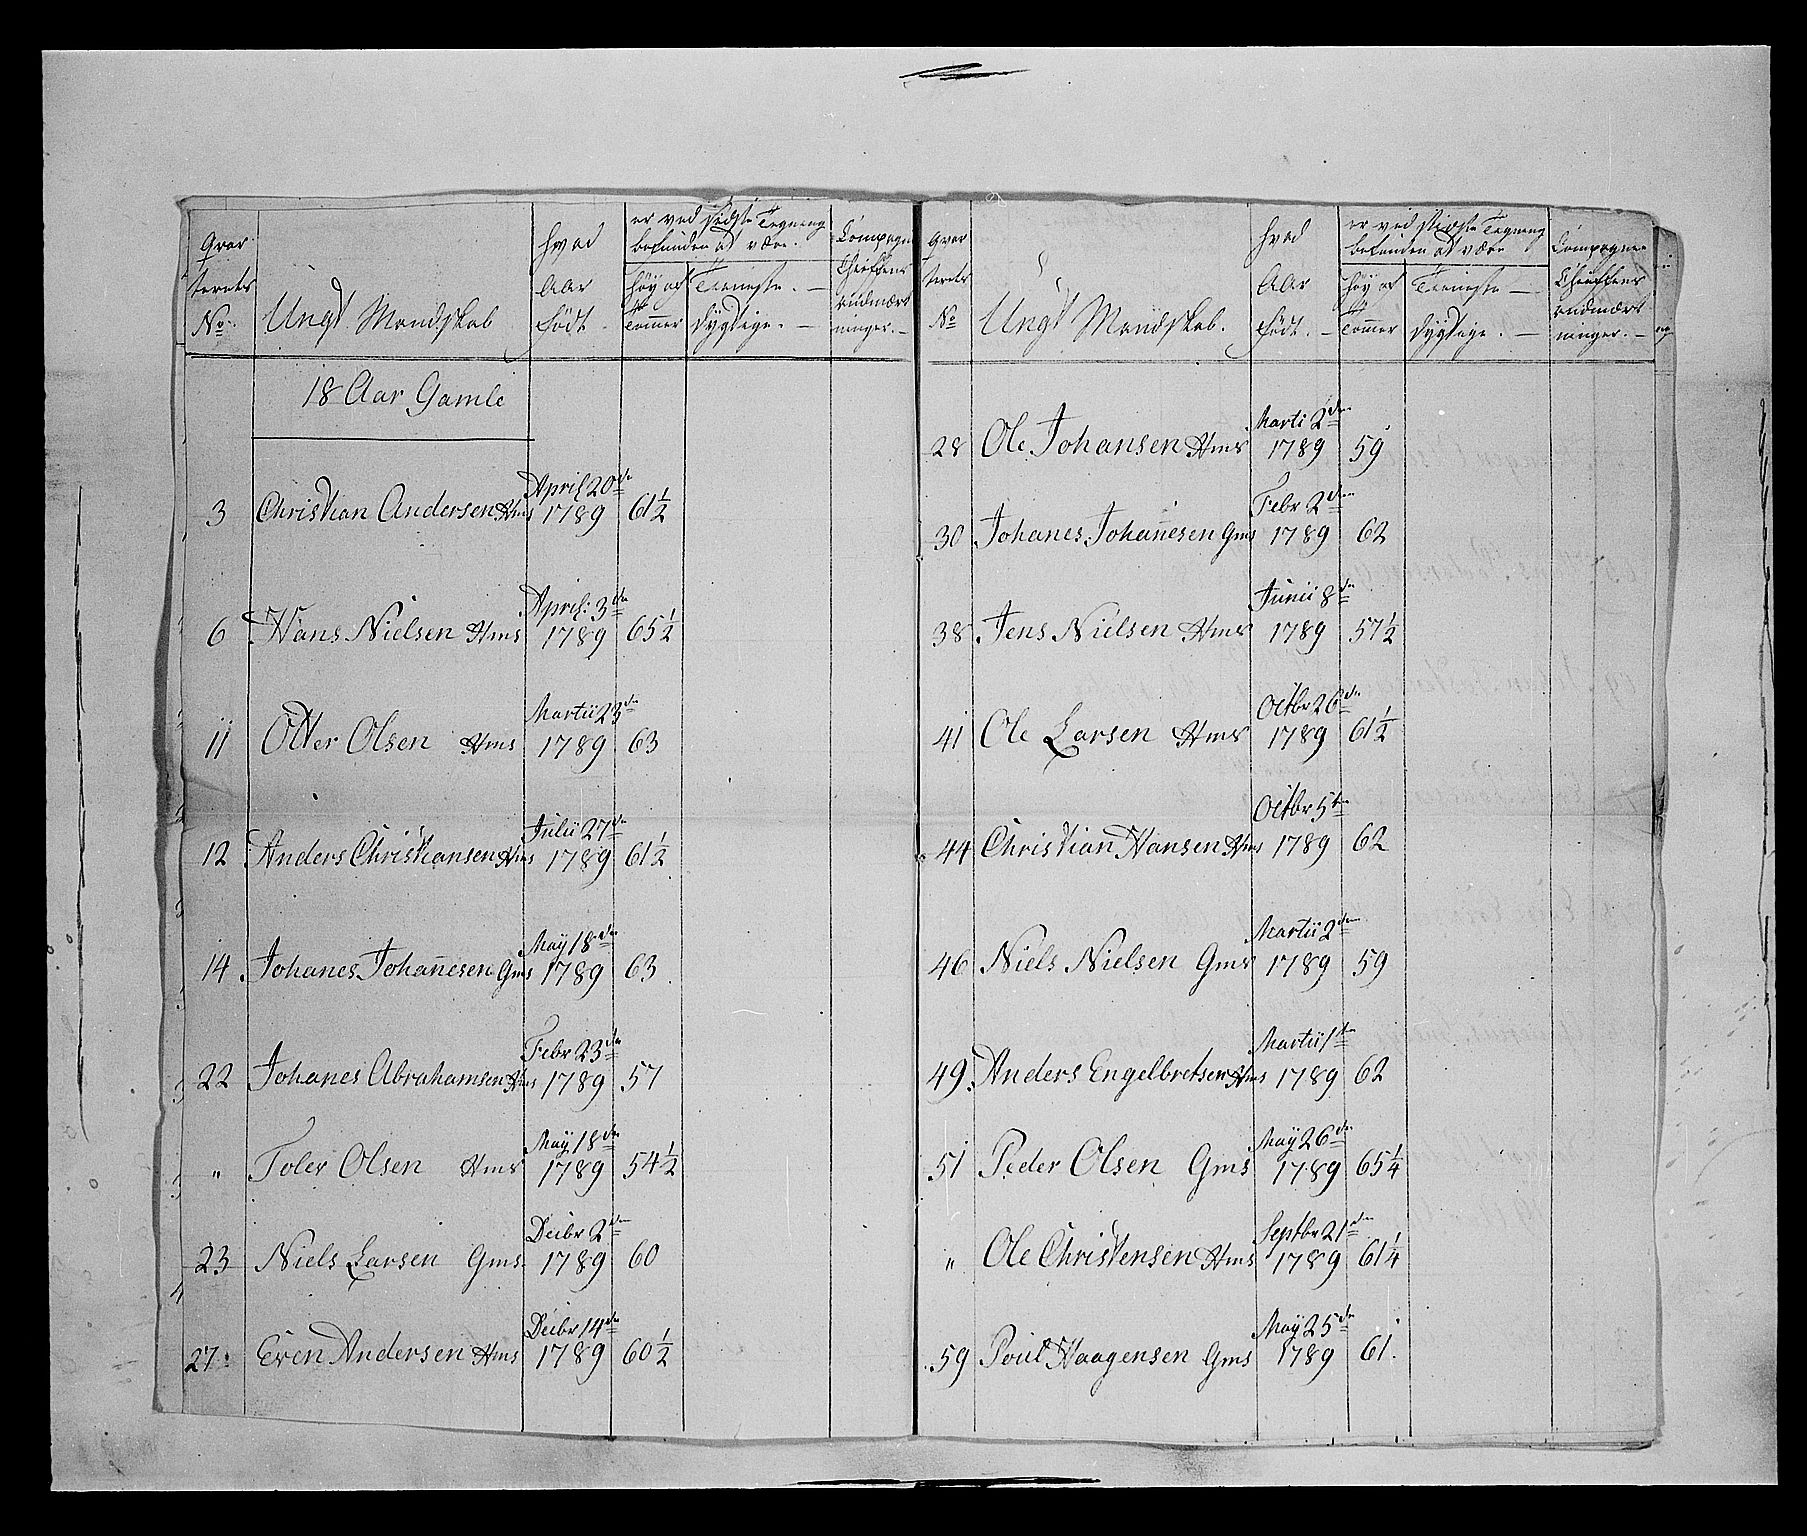 Qvar
terets
No.
Ungt Mandskab
hvad
Aar
født.
er ved sidste Tegning
befunden at være.
høy af
Tommer
Tieniste.
dygtige.
Compagnie
Cheffens
Anmærk
ninger.
18 Aar Gamle
3 Christian Andersen Hms April 20de 1789 61½
6 Hans Nielsen Hms April: 3de 1789 65½
11 Otter Olsen Hms Martii 23de 1789 63
12 Anders Christiansen Hms Julii 27de 1789 61½
14 Johanes Johan̄esen Gms May 18de 1789 63
22 Johanes Abrahamsen Hms Febr 23de 1789 57
" Toler Olsen Hms May 18de 1789 54½
23 Niels Larsen Gms. Decbr 2den 1789 60
27: Even Andersen Hms Decbr 14de 1789 60½
Qvar
terets
No
Ungt Mandskab.
hvad
Aar
født.
er ved sidste Tegning
befunden at være
høy af
Tommer
Tieniste
dygtige.
Compagnie
Cheffens
Anmærk
ninger.
28 Ole Johansen Hms Marti 2den 1789 59
30 Johanes Johan̄esen Gms Febr 2den 1789 62
38 Jens Nielsen Hms Junii 8de 1789 57½
41 Ole Larsen Hms Octbr 26de 1789 61½
44 Christian Hansen Hms Octbr 5te 1789 62
46 Niels Nielsen Gms Martii 2den 1789 59
49. Anders Engelbretsen Hms Martii 1te 1789 62
51 Peder Olsen Gms May 26de 1789 65¼
" Ole Christensen Hms Septbr 21de 1789 61¼
59 Poul Haagensen Gms May 25de 1789 61.